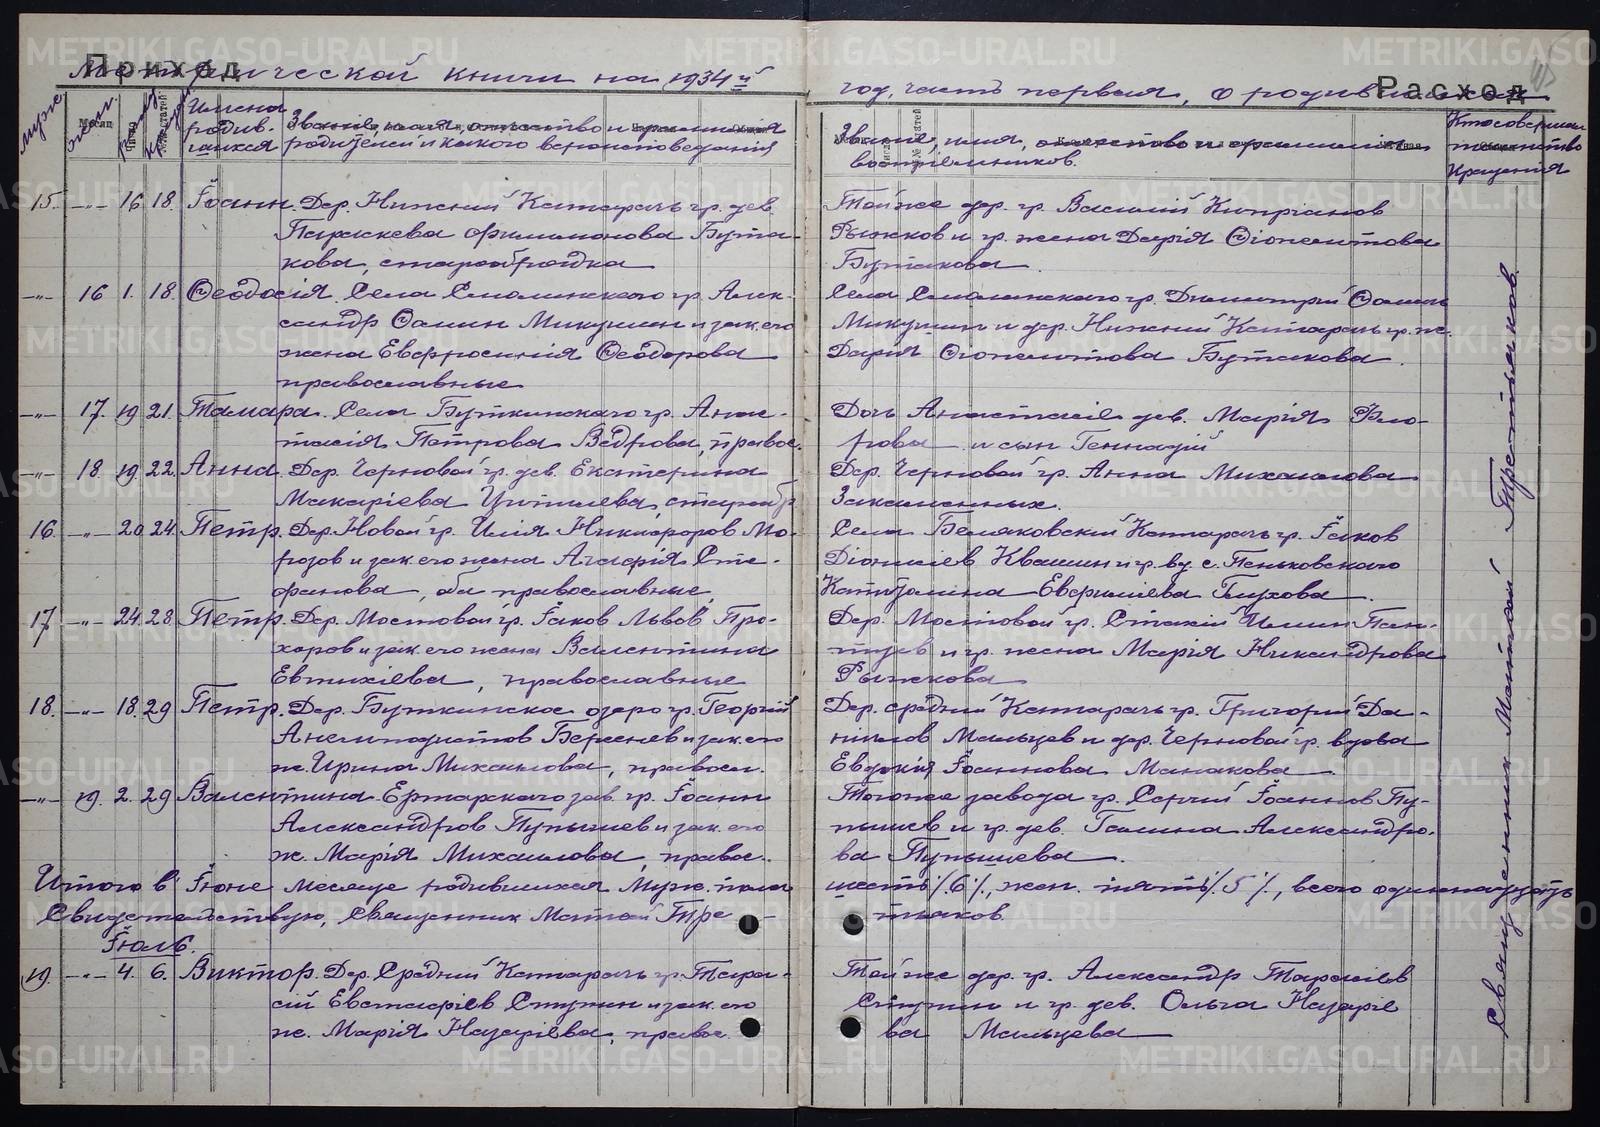 Приход
Метрической книги на 1934й
год, часть первая, о родившихся
Расход
Муж. Жен. Имена родив-шихся
Звание, имя, отчество и фамилия
родителей и какого вероисповедания
Звание, имя, отчество и фамилия
восприемников.
Кто совершал
таинство
крещения
15. -"- 16 18. Іоанн. Дер. Нижний Катарачь гр. дев.
Параскева Филимонова Бута-
кова, старообрядка
Тойже дер. гр. Василий Киприанов
Рыжков и гр. жена Дарія Ѳіопемптова
Бутакова.
-"- 16 1. 18. Ѳеодосія. Села Смолинскаго гр. Алек-
сандр Ѳомин Микушин и зак. его
жена Евфросинія Ѳеодорова
православные
Села Смолинскаго гр. Димитрий Ѳомин
Микушин и дер. Нижний Катарачь гр. ж.
Дарія Ѳіопемптова Бутакова.
-"- 17. 19 21. Тамара. Села Буткинскаго гр. Анас-
тасія Петрова Ведрова, правос.
Дочь Анастасіе дев. Марія Фло-
рова и сын Геннадій
-"- 18. 19. 22. Анна. Дер. Черновой гр. дев. Екатерина
Макаріева Упитилева, старообр.
Дер. Черновой гр. Анна Михаилова
Закаменных.
16. -"- 20. 24. Петр. Дер. Новой гр. Илія Никифоров Мо-
розов и зак. его жена Агафія Сте-
фанова, оба православные.
Села Беляковский Катарачь гр. Іаков
Діонисіев Квашин и гр. вд. с. Пеньковскаго
Капитолина Евфимиева Глухова.
17 -"- 24. 28. Петр. Дер. Мостовой гр. Іаков Львов Про-
хоров и зак. его жена Валентина
Евтихіева, православные
Дер. Мостовой гр. Стахий Илиин Пан-
тузев и гр. жена Марія Никандрова
Рыжкова
18. -"- 18. 29 Петр. Дер. Буткинское озеро гр. Георгий
Анемподистов Береснев и зак. его
ж. Ирина Михаилова, правосл.
Дер. средний Катарачь гр. Григорий Да-
ниилов Мальцев и дер. Черновой гр. вдова
Евдокия Іоаннова Манакова.
-"- 19. 2. 29 Валентина Ертарскаго зав. гр. Іоанн
Александров Пупышев и зак. его
ж. Марія Михаилова, правос.
Тогоже завода гр. Сергий Іоаннов Пу-
пышев и гр. дев. Галина Александро-
ва Пупышева.
Итого в Іюне месяце родившихся Муж. пола
шесть /.6/., жен. пять /.5/., всего одиннадцать
Свидетельствую, священник Матфей Тре-
тьяков.
Іюль.
19. -"- 4. 6. Виктор. Дер. Средний Катарачь гр. Тара-
сий Евстафіев Ступин и зак. его
ж. Марія Назаріева, правос.
Тойже дер. гр. Александр Тарасиев
Ступин и гр. дев. Ольга Назаріе
ва Мальцева
Священник Матфей Третьяков.